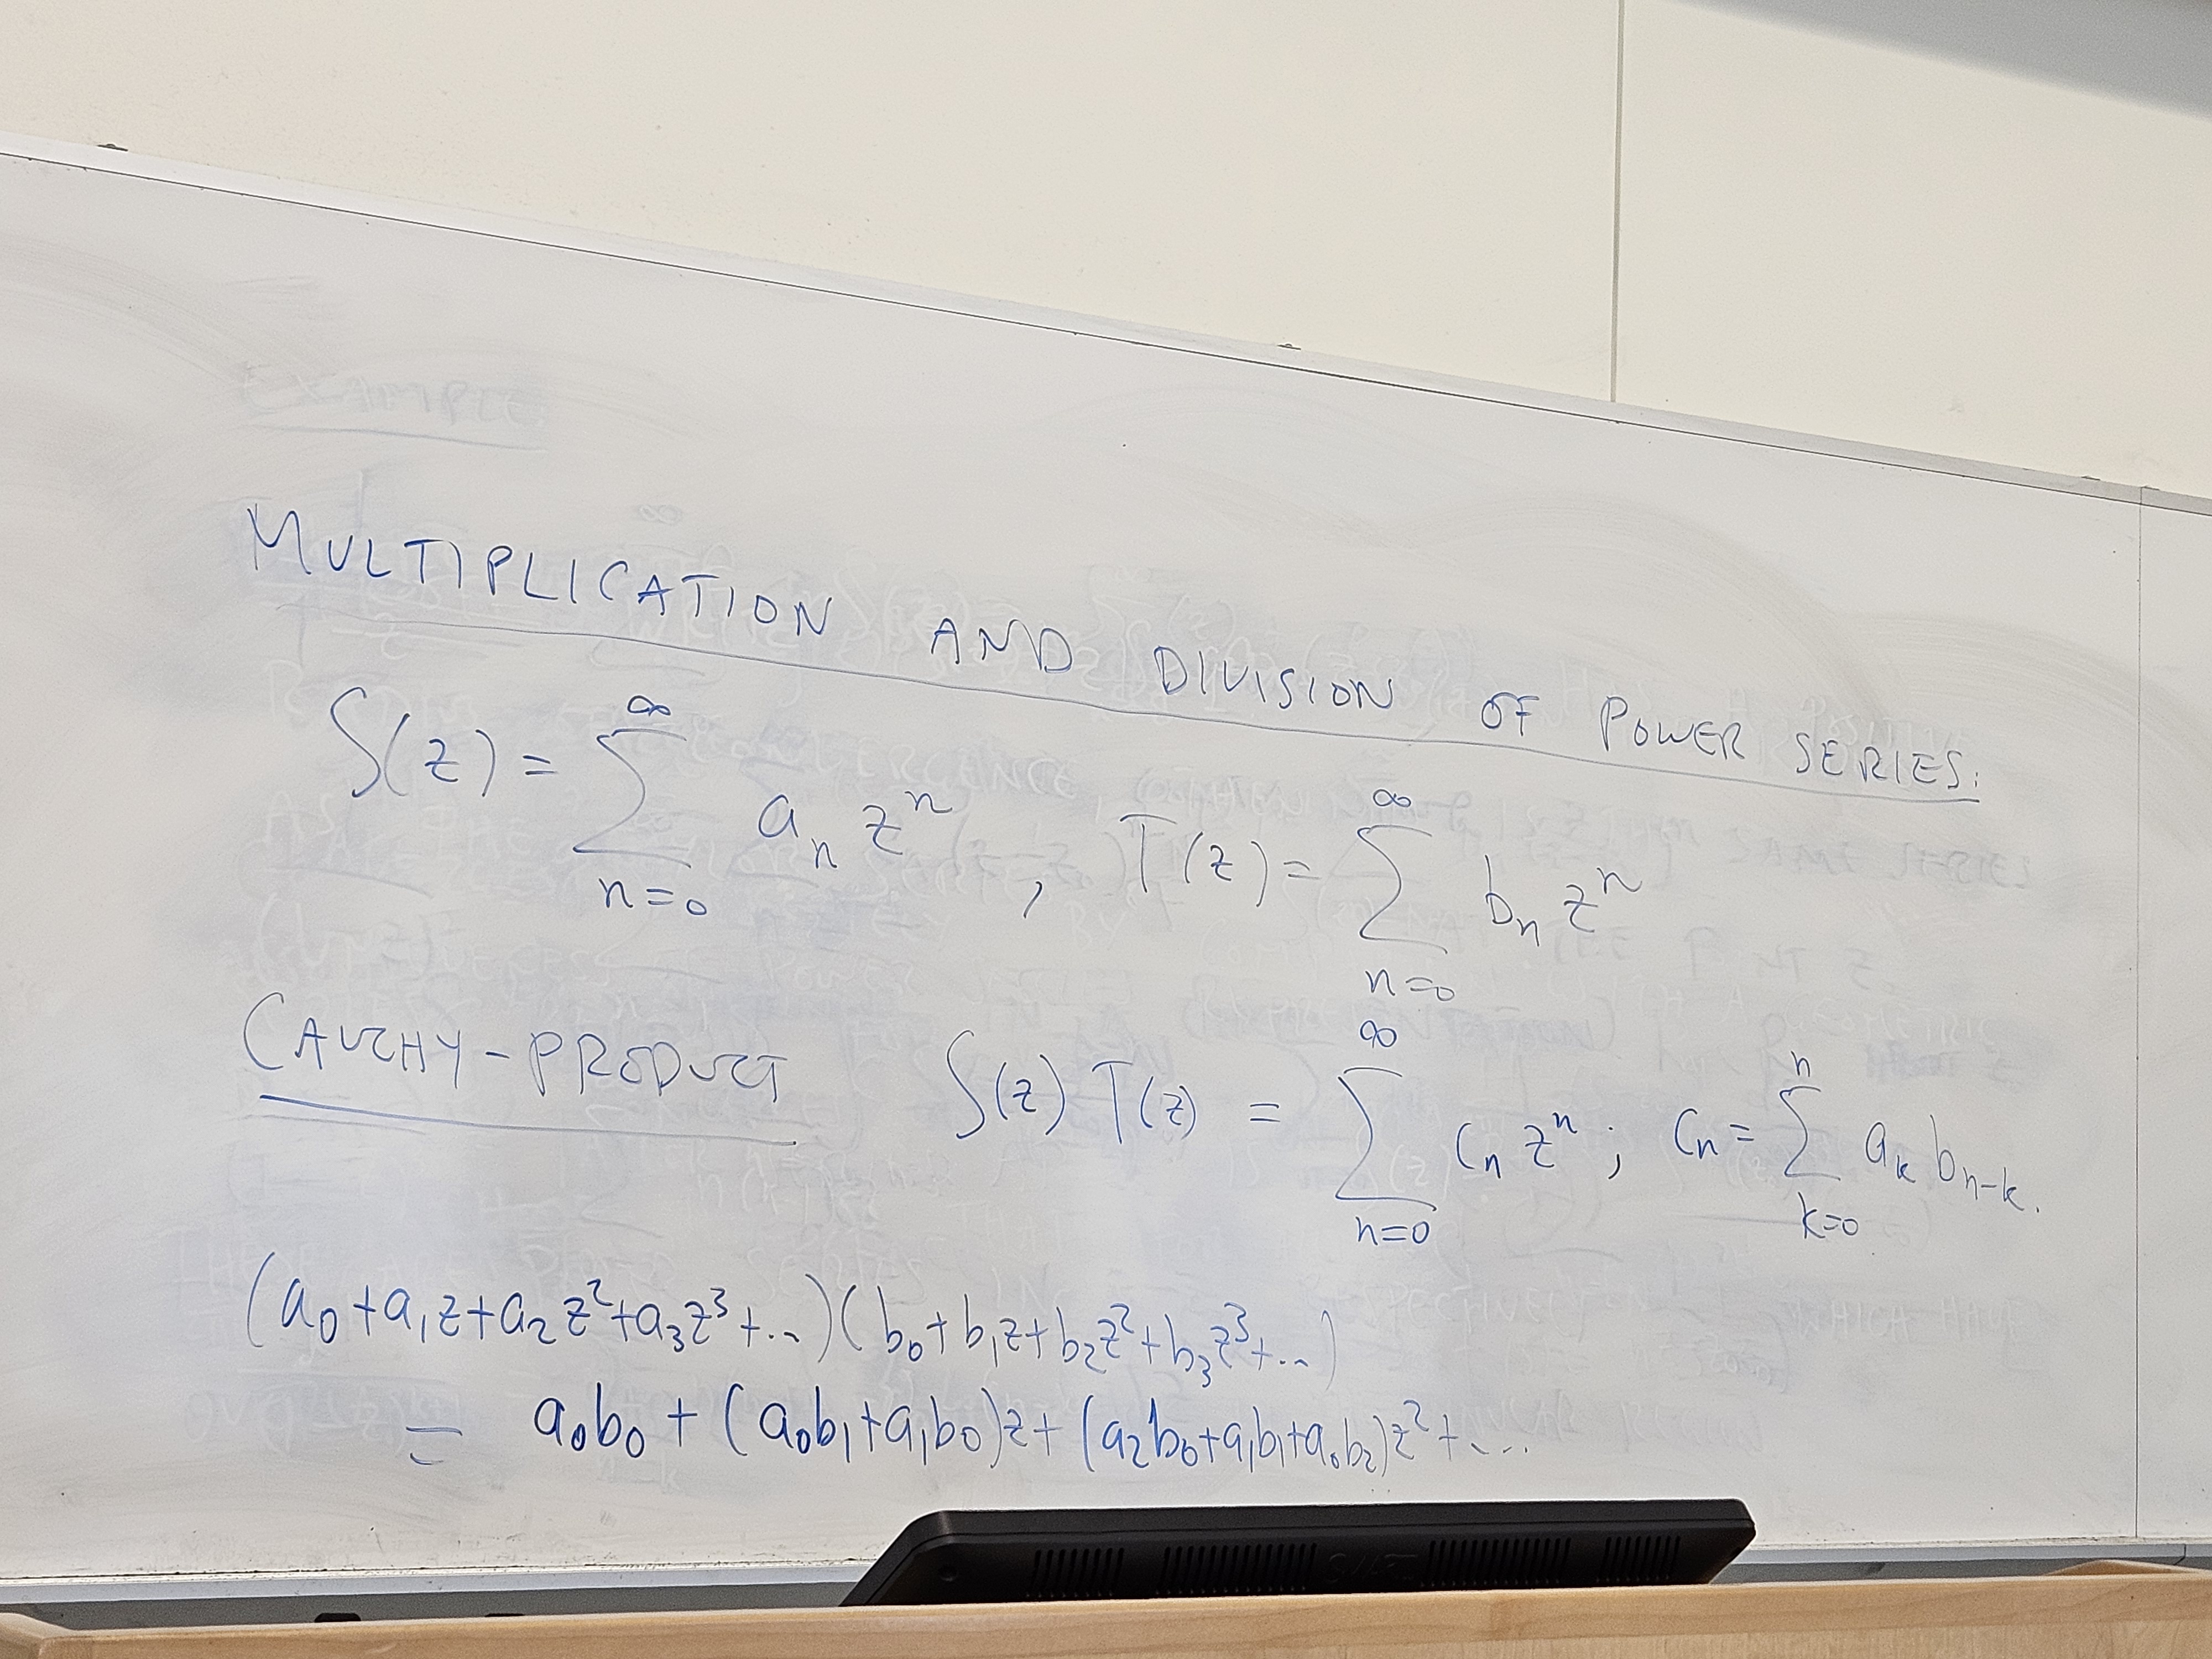 MULTIPLICATION AND DIVISION OF POWER SERIES:
S(z) = ∑_{n=0}^{∞} a_n z^n , T(z) = ∑_{n=0}^{∞} b_n z^n
CAUCHY-PRODUCT S(z) T(z) = ∑_{n=0}^{∞} c_n z^n ; c_n = ∑_{k=0}^{n} a_k b_{n-k}.
(a_0+a_1z+a_2z^2+a_3z^3+...)(b_0+b_1z+b_2z^2+b_3z^3+...)
= a_0b_0 + (a_0b_1+a_1b_0)z + (a_2b_0+a_1b_1+a_0b_2)z^2+....